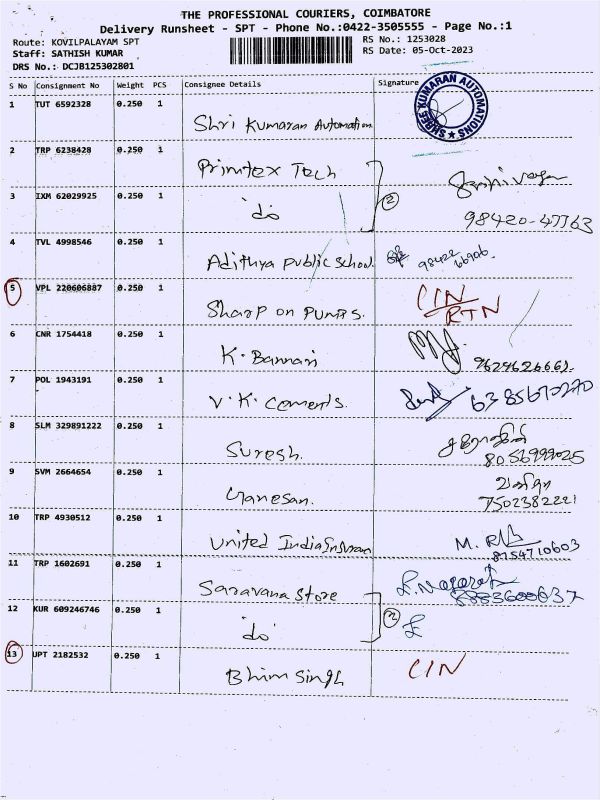 THE PROFESSIONAL COURIERS, COIMBATORE
Delivery Runsheet - SPT - Phone No.:0422-3505555 - Page No.:1
Route: KOVILPALAYAM SPT
RS No.: 1253028
Staff: SATHISH KUMAR
RS Date: 05-Oct-2023
DRS No.: DCJB125302801
S No Consignment No Weight PCS Consignee Details Signature
SHREE KUMARAN AUTOMATIONS
1 TUT 6592328 0.250 1
Shri Kumaran Automation
2 TRP 6238428 0.250 1
Primtex Tech
3 IXM 62029925 0.250 1
"do 2
98420-47763
4 TVL 4998546 0.250 1
Adithya public school. 98422 66906
5 VPL 220606887 0.250 1
Sharp on Pumps. CIN
RTN
6 CNR 1754418 0.250 1
K. Bannari
7 POL 1943191 0.250 1
V.K. Cements. 6385670270
8 SLM 329891222 0.250 1
Suresh. 8056999025
9 SVM 2664654 0.250 1
Ganesan. 7502382221
10 TRP 4930512 0.250 1
United India Insuran M. 8154710603
11 TRP 1602691 0.250 1
Saravana Store 8883600637
12 KUR 609246746 0.250 1
"do 2
13 UPT 2182532 0.250 1
Bhim Singh CIN